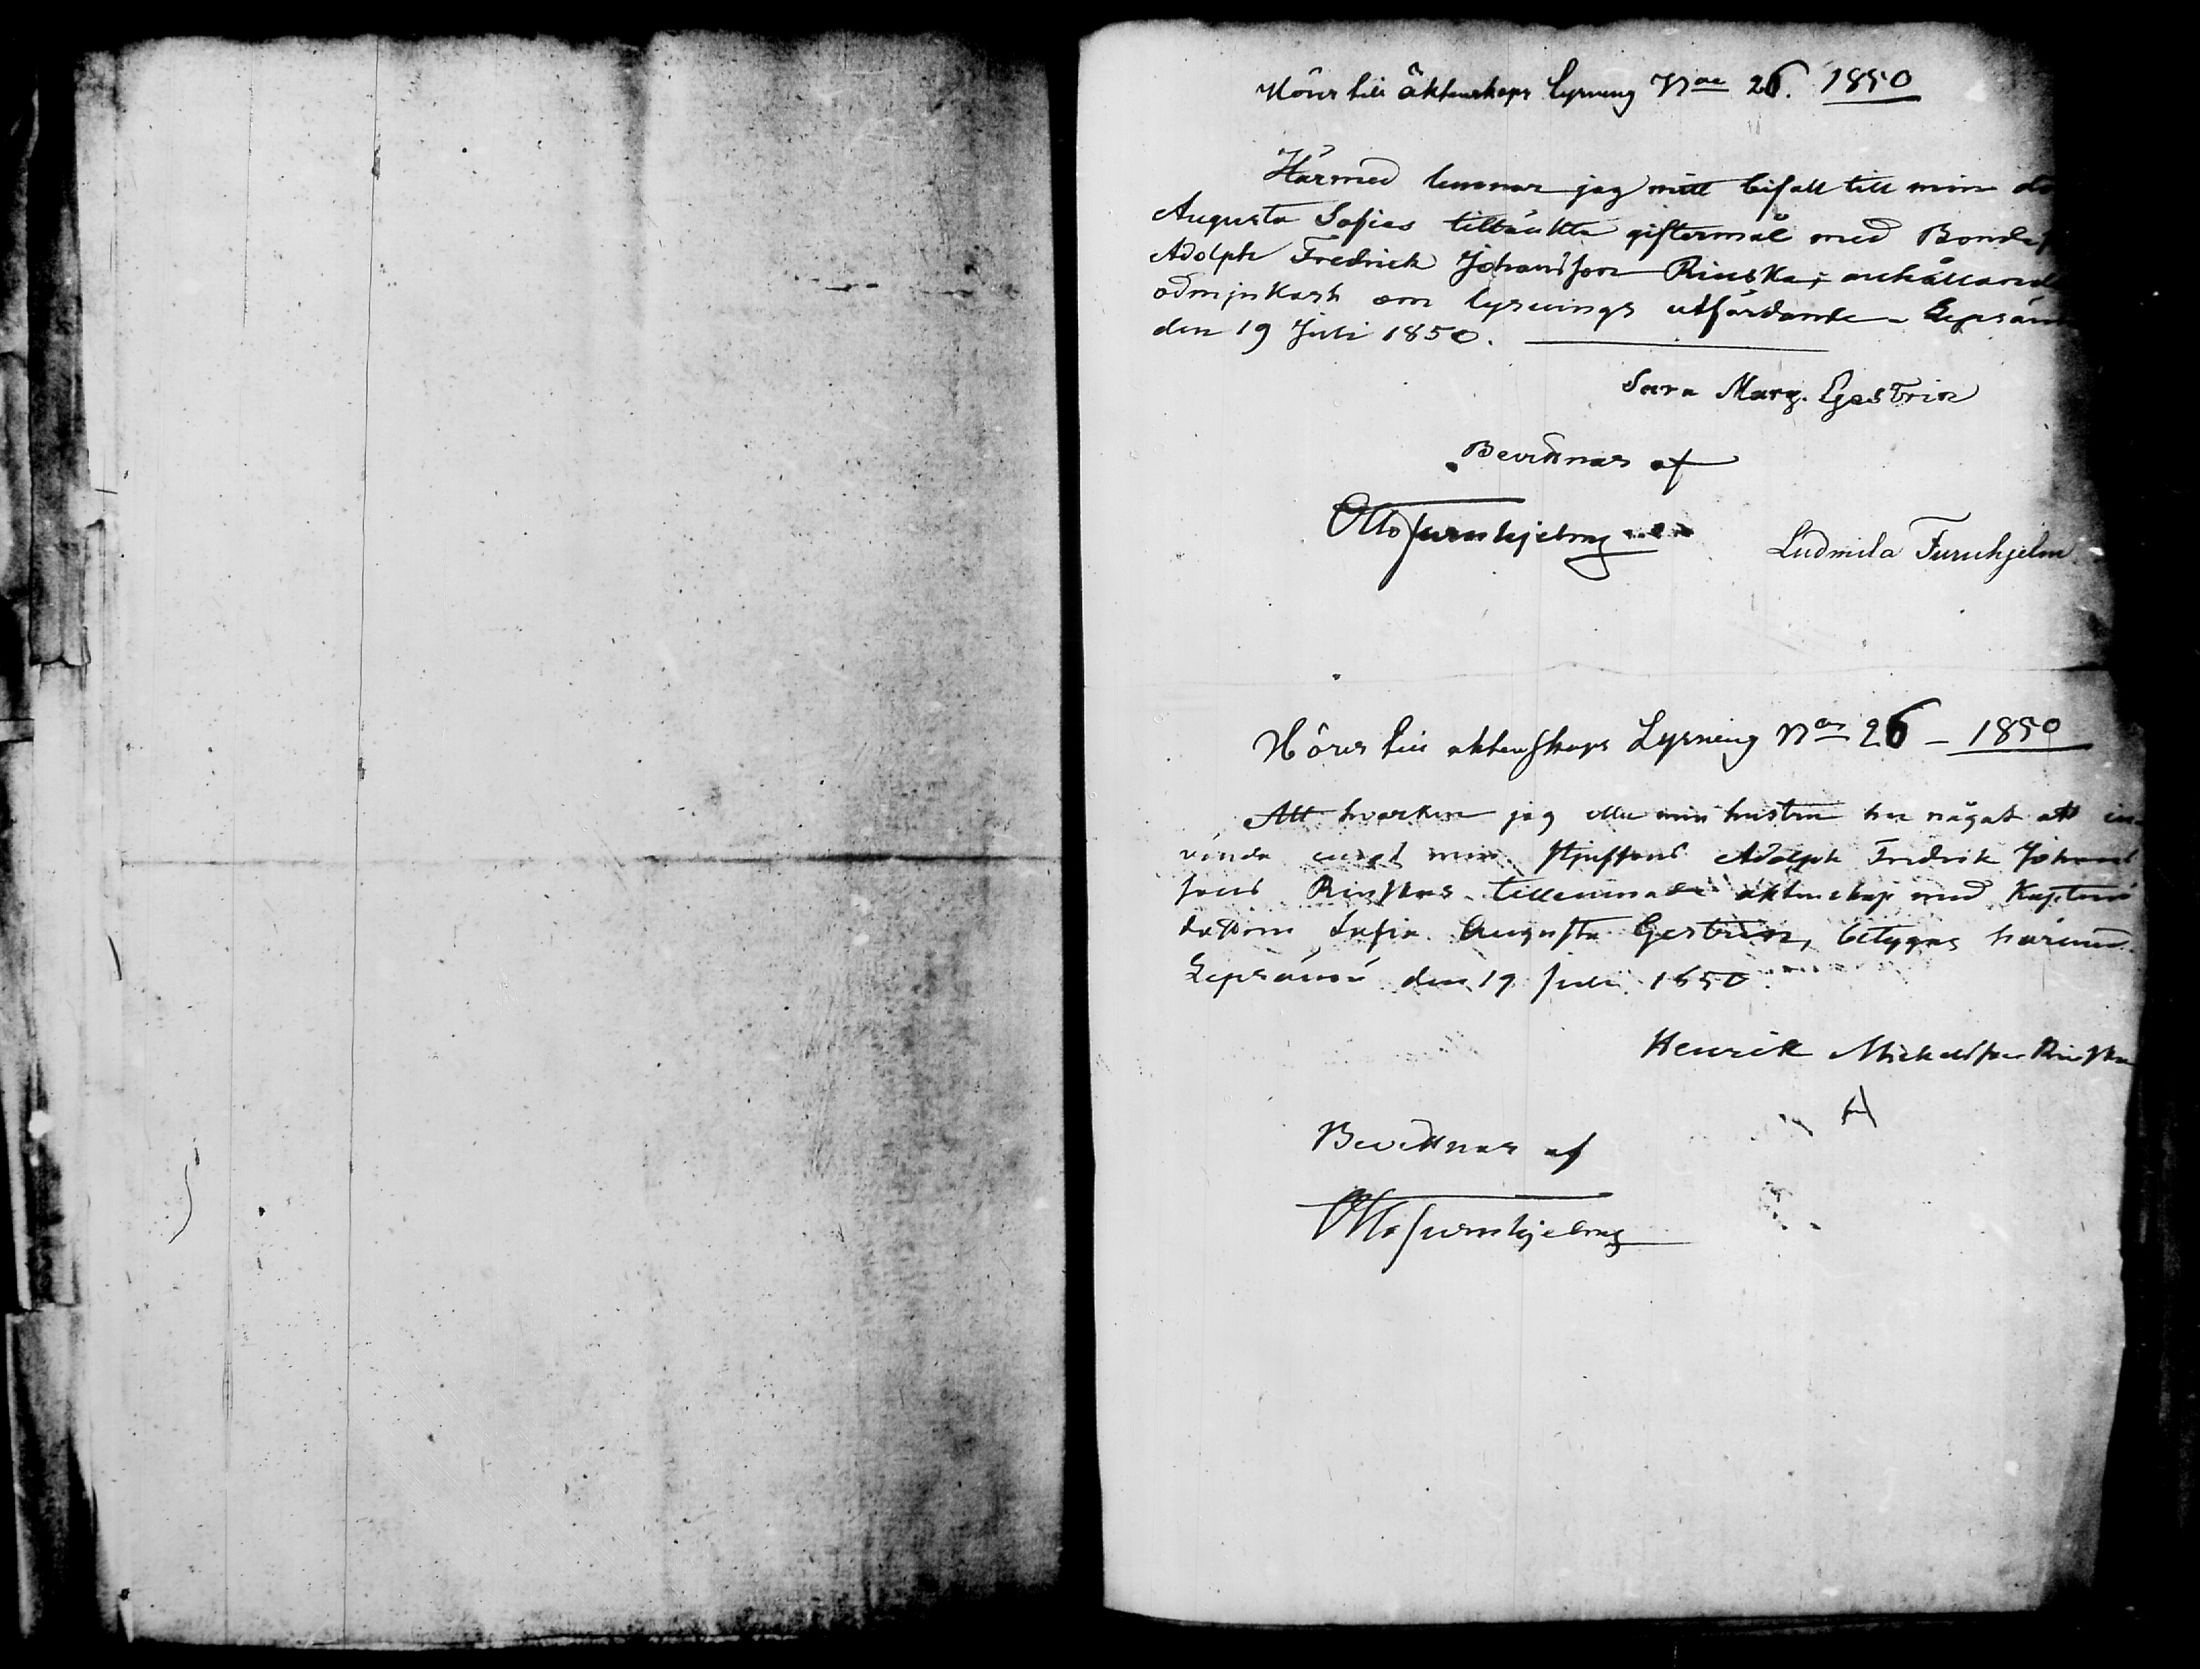 Hörer till äktenskaps lysning N:o 26. 1850
Härmed lemnar jag mitt bifall till min do
Augusta Sofias tilltänkta giftermål med Bonde
Adolph Fredrick Johansson Rinska, anhållande
ödmjukast om lysnings utfärdande
den 19 Juli 1850.
Sara Marg. Gestrin
Bevittnas af
Otto Furuhjelm
Ludmila Furuhjelm
Hörer till äktenskaps Lysning N:o 26 – 1850
Att hvarken jag eller min hustru har något att in-
vända emot min styfsons Adolph Fredrik Johans
sons Rinskas tillernade äktenskap med Kaptens
dottern Sofia Augusta Gestrin, betygas härmed.
den 19 Juli 1850
Henrik Michelsson Rinska
Bevittnar af
Otto Furuhjelm